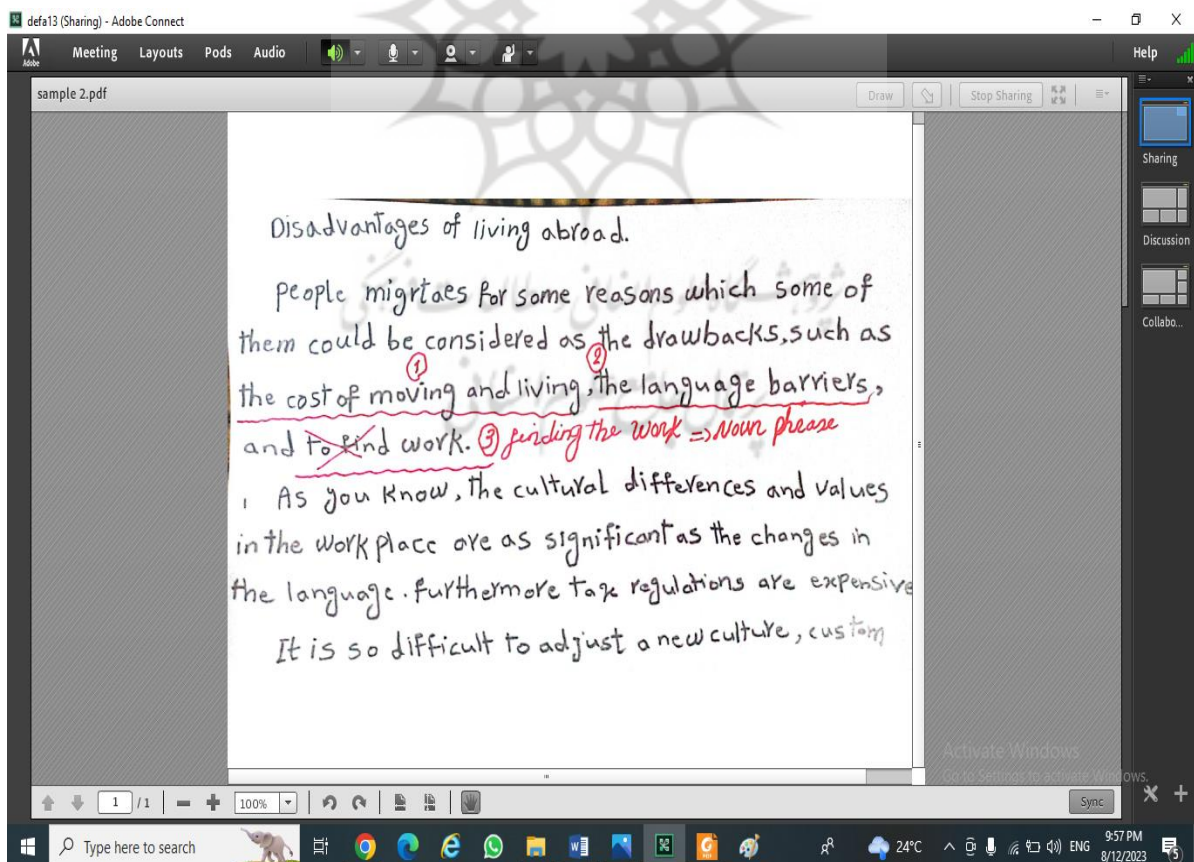 defa13 (Sharing) - Adobe Connect
Adobe Meeting Layouts Pods Audio Help
sample 2.pdf Draw Stop Sharing
Sharing
Discussion
Collabo...
Disadvantages of living abroad.
people migrtaes for some reasons which some of
them could be considered as the drawbacks, such as
① ②
the cost of moving and living, the language barriers,
and to find work. ③ finding the work => Noun phrease
As you know, the cultural differences and values
in the work place are as significant as the changes in
the language. furthermore tax regulations are expensive
It is so difficult to adjust a new culture, custom
Activate Windows
Go to Settings to activate Windows.
1 / 1 100% Sync
Type here to search 24°C ENG 9:57 PM
8/12/2023 5